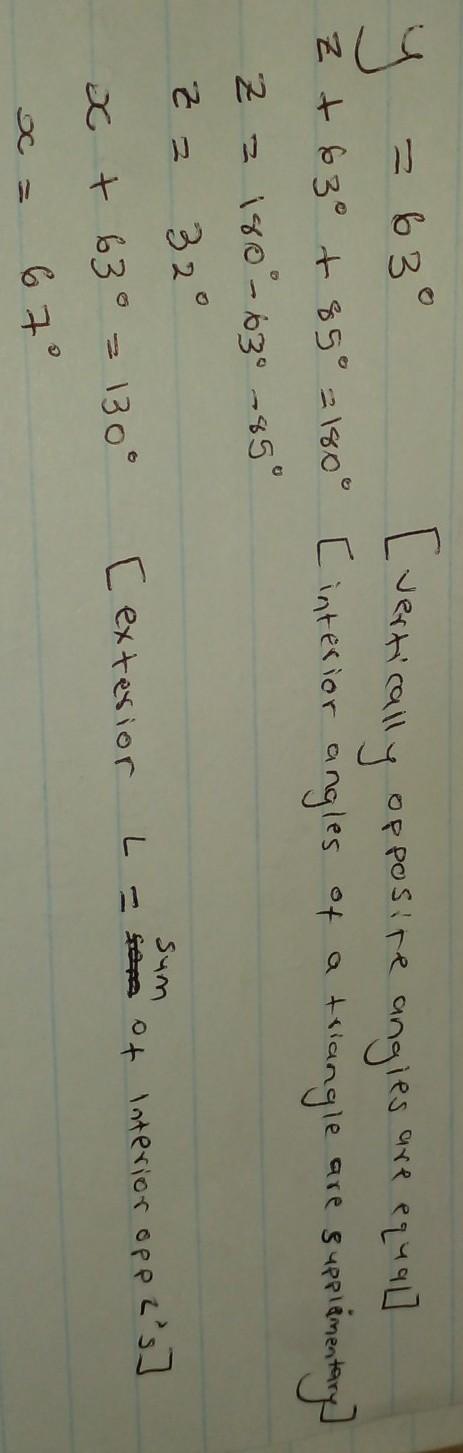 y = 63° [vertically opposite angles are equal]
z + 63° + 85° = 180° [interior angles of a triangle are supplementary]
z = 180° - 63° - 85°
z = 32°
x + 63° = 130° [exterior L = sum of interior opp L's]
x = 67°